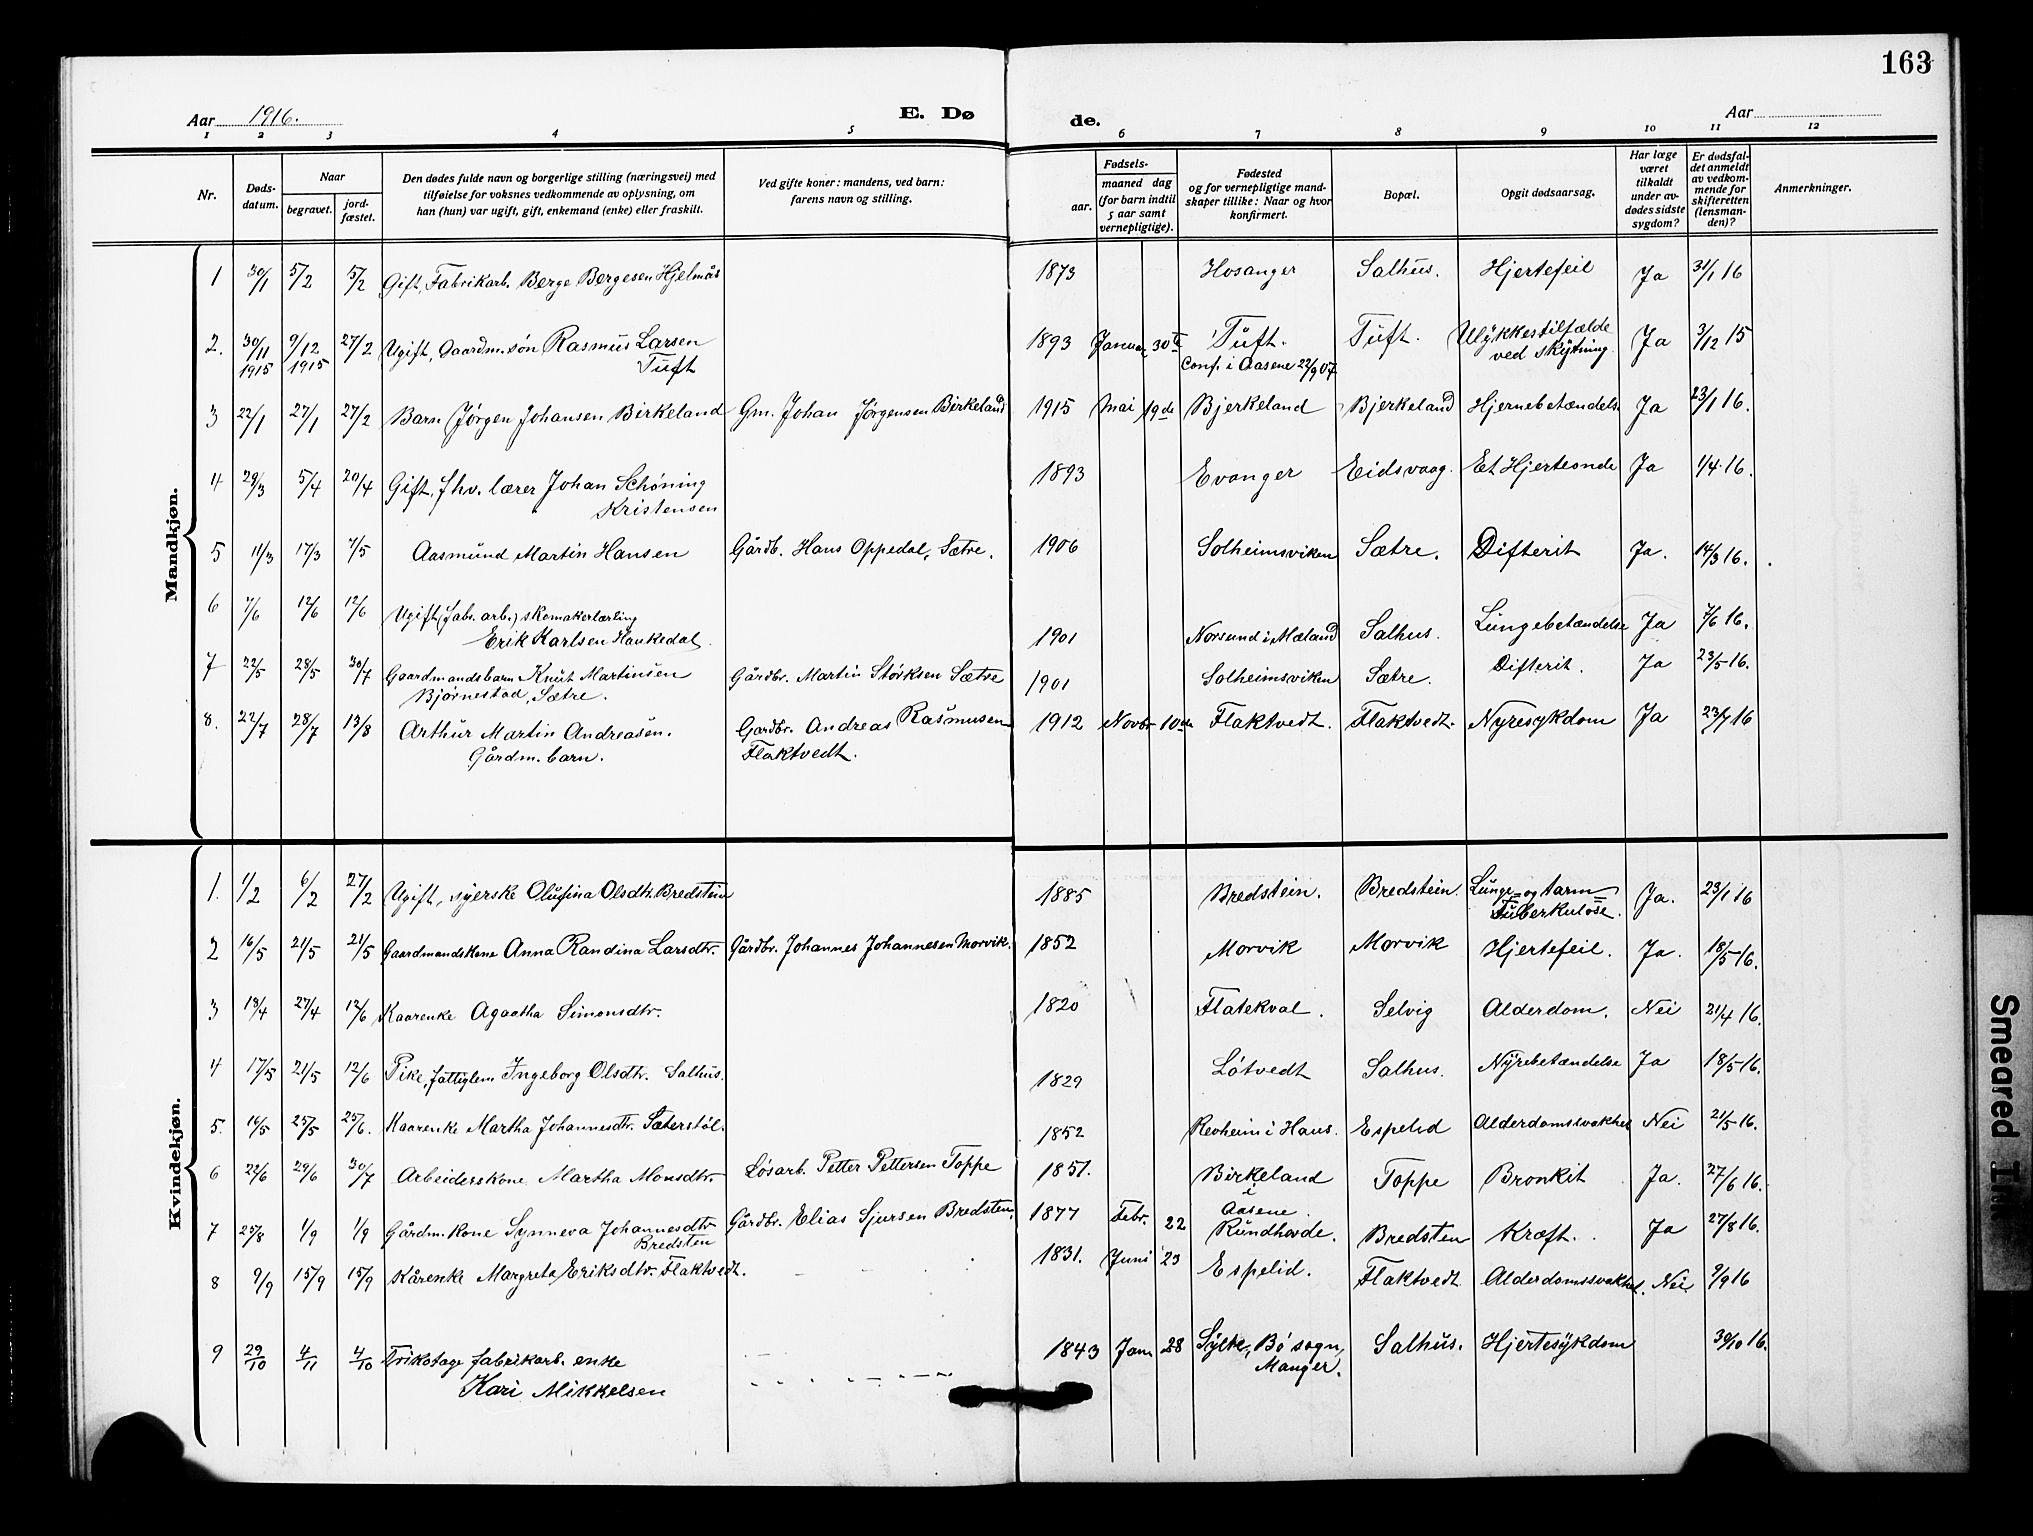 163
Aar 1916.
E. Dø
de.
Aar
1 2 3 4 5 6 7 8 9 10 11 12
Nr.
Døds-
datum.
Naar
begravet.
jord-
fæstet.
Den dødes fulde navn og borgerlige stilling (næringsvei) med
tilføielse for voksnes vedkommende av oplysning, om
han (hun) var ugift, gift, enkemand (enke) eller fraskilt.
Ved gifte koner: mandens, ved barn:
farens navn og stilling.
Fødsels-
aar.
maaned dag
(for barn indtil
5 aar samt
vernepligtige).
Fødested
og for vernepligtige mand-
skaper tillike: Naar og hvor
konfirmert.
Bopæl.
Opgit dødsaarsag.
Har læge
været
tilkaldt
under av-
dødes sidste
sygdom?
Er dødsfal-
det anmeldt
av vedkom-
mende for
skifteretten
(lensman-
den)?
Anmerkninger.
Mandkjøn.
1 30/1 5/2 5/2 Gift, Fabrikarb. Berge Bergesen Hjelmås 1873 Hosanger Salhus. Hjertefeil Ja 31/1 16
2. 30/11 1915 9/12 1915 27/2 Ugift, Gaardm.søn Rasmus Larsen 1893 Januar 30te Tuft. Tuft. Ulykkestilfælde Ja 3/12 15
Tuft Conf. i Aasene 22/9 07 ved skytning.
3 22/1 27/1 27/2 Barn Jørgen Johansen Birkeland Gm. Johan Jørgensen Birkeland 1915 Mai 19de Bjerkeland Bjerkeland Hjernebetændelse Ja 23/1 16.
4 29/3 5/4 20/4 Gift, fhv. lærer Johan Schøning 1893 Evanger Eidsvaag. Et Hjerteonde Ja 1/4 16.
Kristensen
5 11/3 17/3 7/5 Aasmund Martin Hansen Gårdb. Hans Oppedal, Sætre. 1906 Solheimsviken Sætre. Difterit Ja. 14/3 16.
6 7/6 12/6 12/6 Ugift (fabr. arb.) skomakerlærling Lungebetændelse Ja 7/6 16.
Erik Karlsen Haukedal. 1901 Norsund i Mæland Salhus.
7 22/5 28/5 30/7 Gaardmandsbarn Knut Martinsen Gårdbr. Martin Størksen Sætre 1901 Solheimsviken Sætre. Difterit. Ja 23/5 16.
Bjørnestad, Sætre.
8. 22/7 28/7 13/8 Arthur Martin Andreasen. Gardbr. Andreas Rasmusen 1912 Novbr 10de Flaktvedt. Flaktvedt. Nyresykdom Ja 23/7 16
Gårdm. barn. Flaktvedt.
Kvindekjøn.
1. 1/2 6/2 27/2 Ugift, syerske Olufina Olsdtr. Bredstein 1885 Bredstein. Bredstein. Lunge- og tarm Ja. 23/1 16
Tuberkulose.
2 16/5 21/5 21/5 Gaardmandskone Anna Randina Larsdtr. Gårdbr. Johannes Johannesen Morvik. 1852 Morvik Morvik Hjertefeil. Ja. 18/5 16.
3 18/4 27/4 12/6 Kaarenke Agaatha Simonsdtr. 1820 Flatekval. Selvig Alderdom. Nei 21/4 16.
4 17/5 21/5 12/6 Pike, fattiglem Ingeborg Olsdtr. Salhus. 1829 Løtvedt Salhus. Nyrebetændelse Ja 18/5 16.
5. 16/5 25/5 25/6. Kaarenke Martha Johannesdtr. Sæterstøl. 1852 Revheim i Haus. Espelid Alderdomssvakhet Nei 21/5 16.
6 22/6 29/6 30/7 Arbeiderskone Martha Monsdtr. Løsarb. Petter Pettersen Toppe 1851. Birkeland Toppe Bronkit Ja. 27/6 16.
i
Aasene.
7 25/8 1/9 1/9 Gårdm.kone Synneva Johannesdtr Gårdbr. Elias Sjursen Bredsten, 1877 Febr. 22 Rundhovde. Bredsten Kræft. Ja 27/8 16.
Bredsten
8 9/9 15/9 15/9 Kårenke Margreta Eriksdtr. Flaktvedt. 1831. Juni 23 Espelid. Flaktvedt Alderdomssvakhet. Nei 9/9 16
9 29/10 4/11 4/10 Trikotage fabrikarb. enke 1843 Jan 28 Sylte, Bø sogn, Salhus. Hjertesykdom 30/10 16.
Kari Mikkelsen Manger.
Smeared Ink